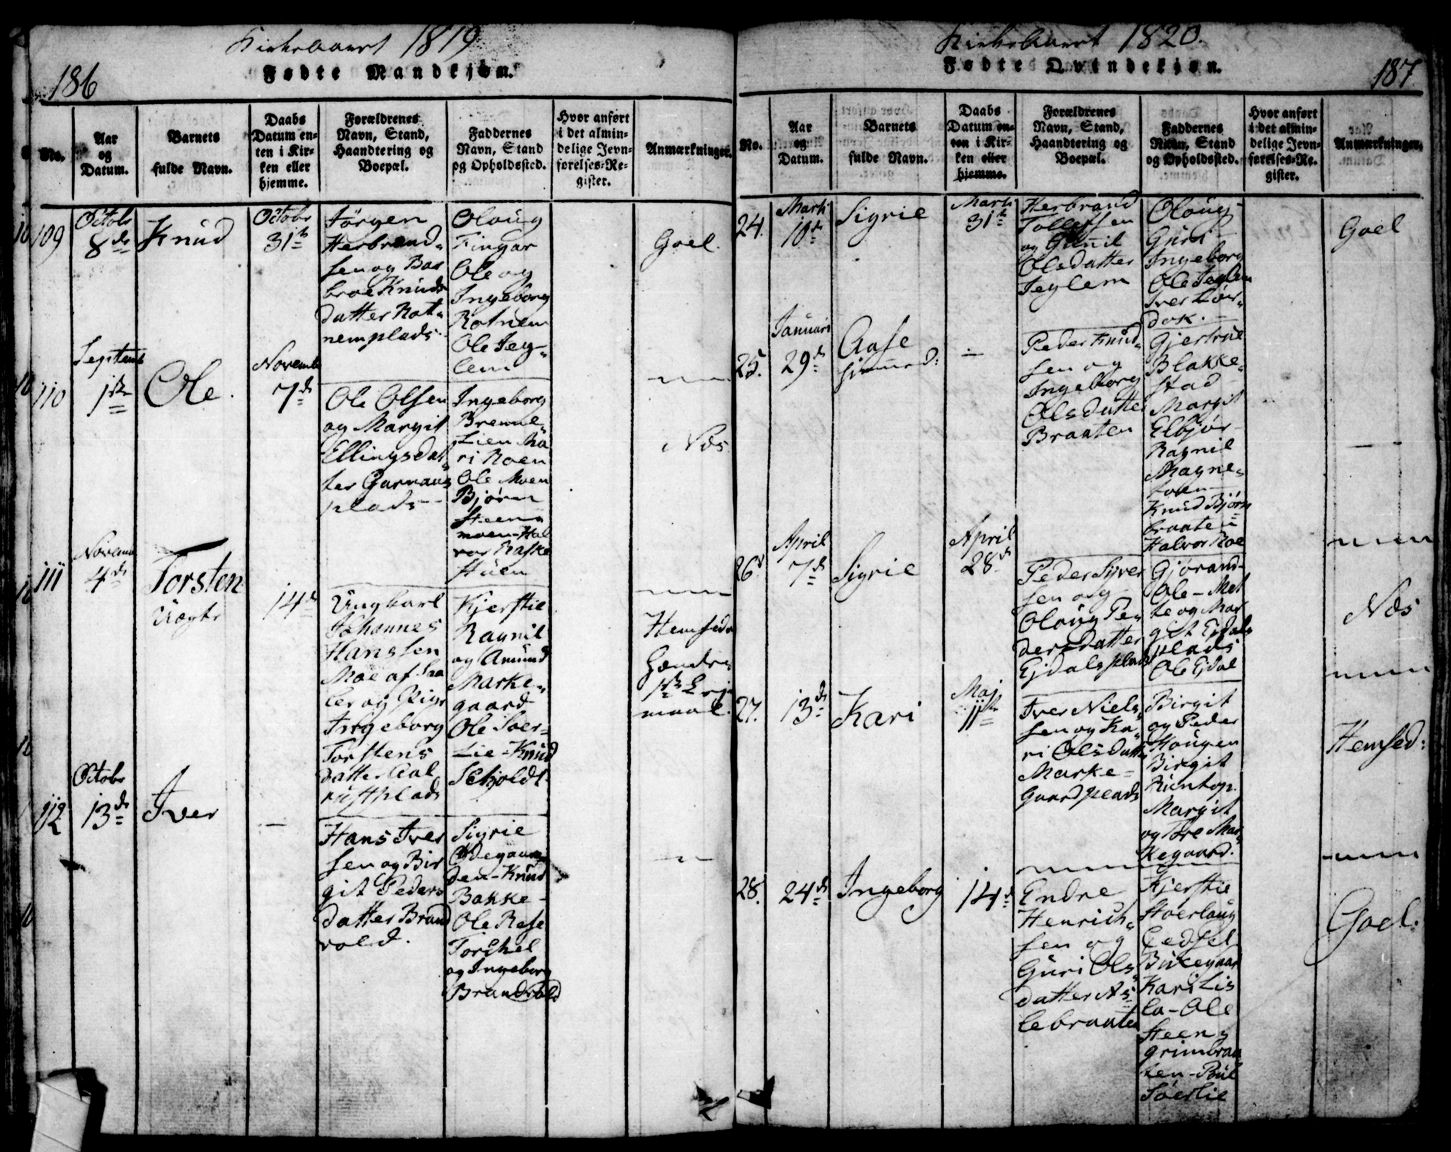 186
Kirkeaaret 1819
Fødte Mandkjøn.
No.
Aar og Datum.
Barnets fulde Navn.
Daabs Datum enten i Kirken eller hjemme.
Forældrenes Navn, Stand, Haandtering og Boepæl.
Faddernes Navn, Stand og Opholdssted.
Hvor anført i det almindelige Jevnførelses-Register.
Anmærkninger.
109
Octobr
8de
Knud
Octobr
31te
Jørgen
Herbrand-
sen og Bar
broe Knuds
datter Rot-
nemplads
Oloug
Fingar
Ole og
Ingeborg
Rotnem
Ole Jeg-
lem
Goel.
110
Septemb
1ste
Ole.
Novemb
7de
Ole Olsen
og Margit
Ellingsdat-
ter Garnaas
plads
Ingeborg
Bremme-
Lien Ka
ri Roen
Ole Moen
Bjørn
Steen-
moen Hal
vor Raske
Huen
Næs
111
Novemb
4de
Torsten
14de
Ungkarl
Johannes
Hanssen
Moe af Saa
ler og Pige
Ingeborg
Torstens
datter
plads
Kjerstie
Ragnil
og Amund
Marke-
gaard
Ole Soer-
Lie Knud
Skjoldt
Hemsed
112
Octobr
13de
Iver
Hans Iver
sen og Bir
git Peders
datter Brand
vold.
Sigrie
Ødegaar
den Knud
Bakke-
Ole
Torchel
og Ingeborg
Brandvold
187
Kirkeaaret 1820.
Fødte Qvindekjøn.
No.
Aar og Datum.
Barnets fulde Navn.
Daabs Datum enten i Kirken eller hjemme.
Forældrenes Navn, Stand, Haandtering og Boepæl.
Faddernes Navn, Stand og Opholdssted.
Hvor anført i det almindelige Jevnførelses-Register.
Anmærkninger.
24.
Marts
10de
Sigrie
Marts
31te
Herbrand
Tollefsen
og Gunil
Olsdatter
Jeglem
Oloug
Guri
Ingeborg
Ole Jeglem
Iver
Goel
25.
Januari
29de
Aase
Peder Knud
sen og
Ingeborg
Olsdatter
Braaten
Gjertrue
Blakke-
stad
Margit
Elbjør-
Ragnil
Magne-
toen
Knud Bjørn
braaten
Halvor Roe
26
April
7de
Sigrie
April
28de
Peder Syver
sen og
Oloug Pe
dersdatter
Ejdalsplads
Gjørand-
Ole
te og Mar
git Ejdals
plads
Ole Ejdal
Næs
27.
13de
Kari
Maj
11te
Iver Niels
sen og Ka
ri Olsdatter
Marke-
gaardsplads
Birgit
og Peder
Hougen
Birgit
Margit
og Tore Mar
kegaard.
Hemsed:
28.
24de
Ingeborg
14de
Endre
Henrich-
sen og
Guri Ols
datter As
lebraaten
Kjerstie
Storlaug
Kari Lis
la-Ole
Steen-
grimbraa
ten-Poul
Søerlie
Goel: